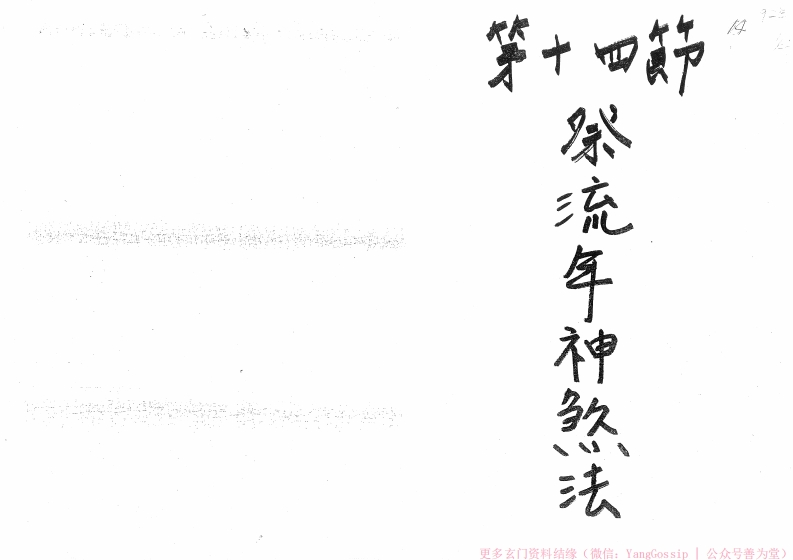 第十四節
祭流年神煞法
14
更多玄门资料结缘（微信：YangGossip | 公众号善为堂）